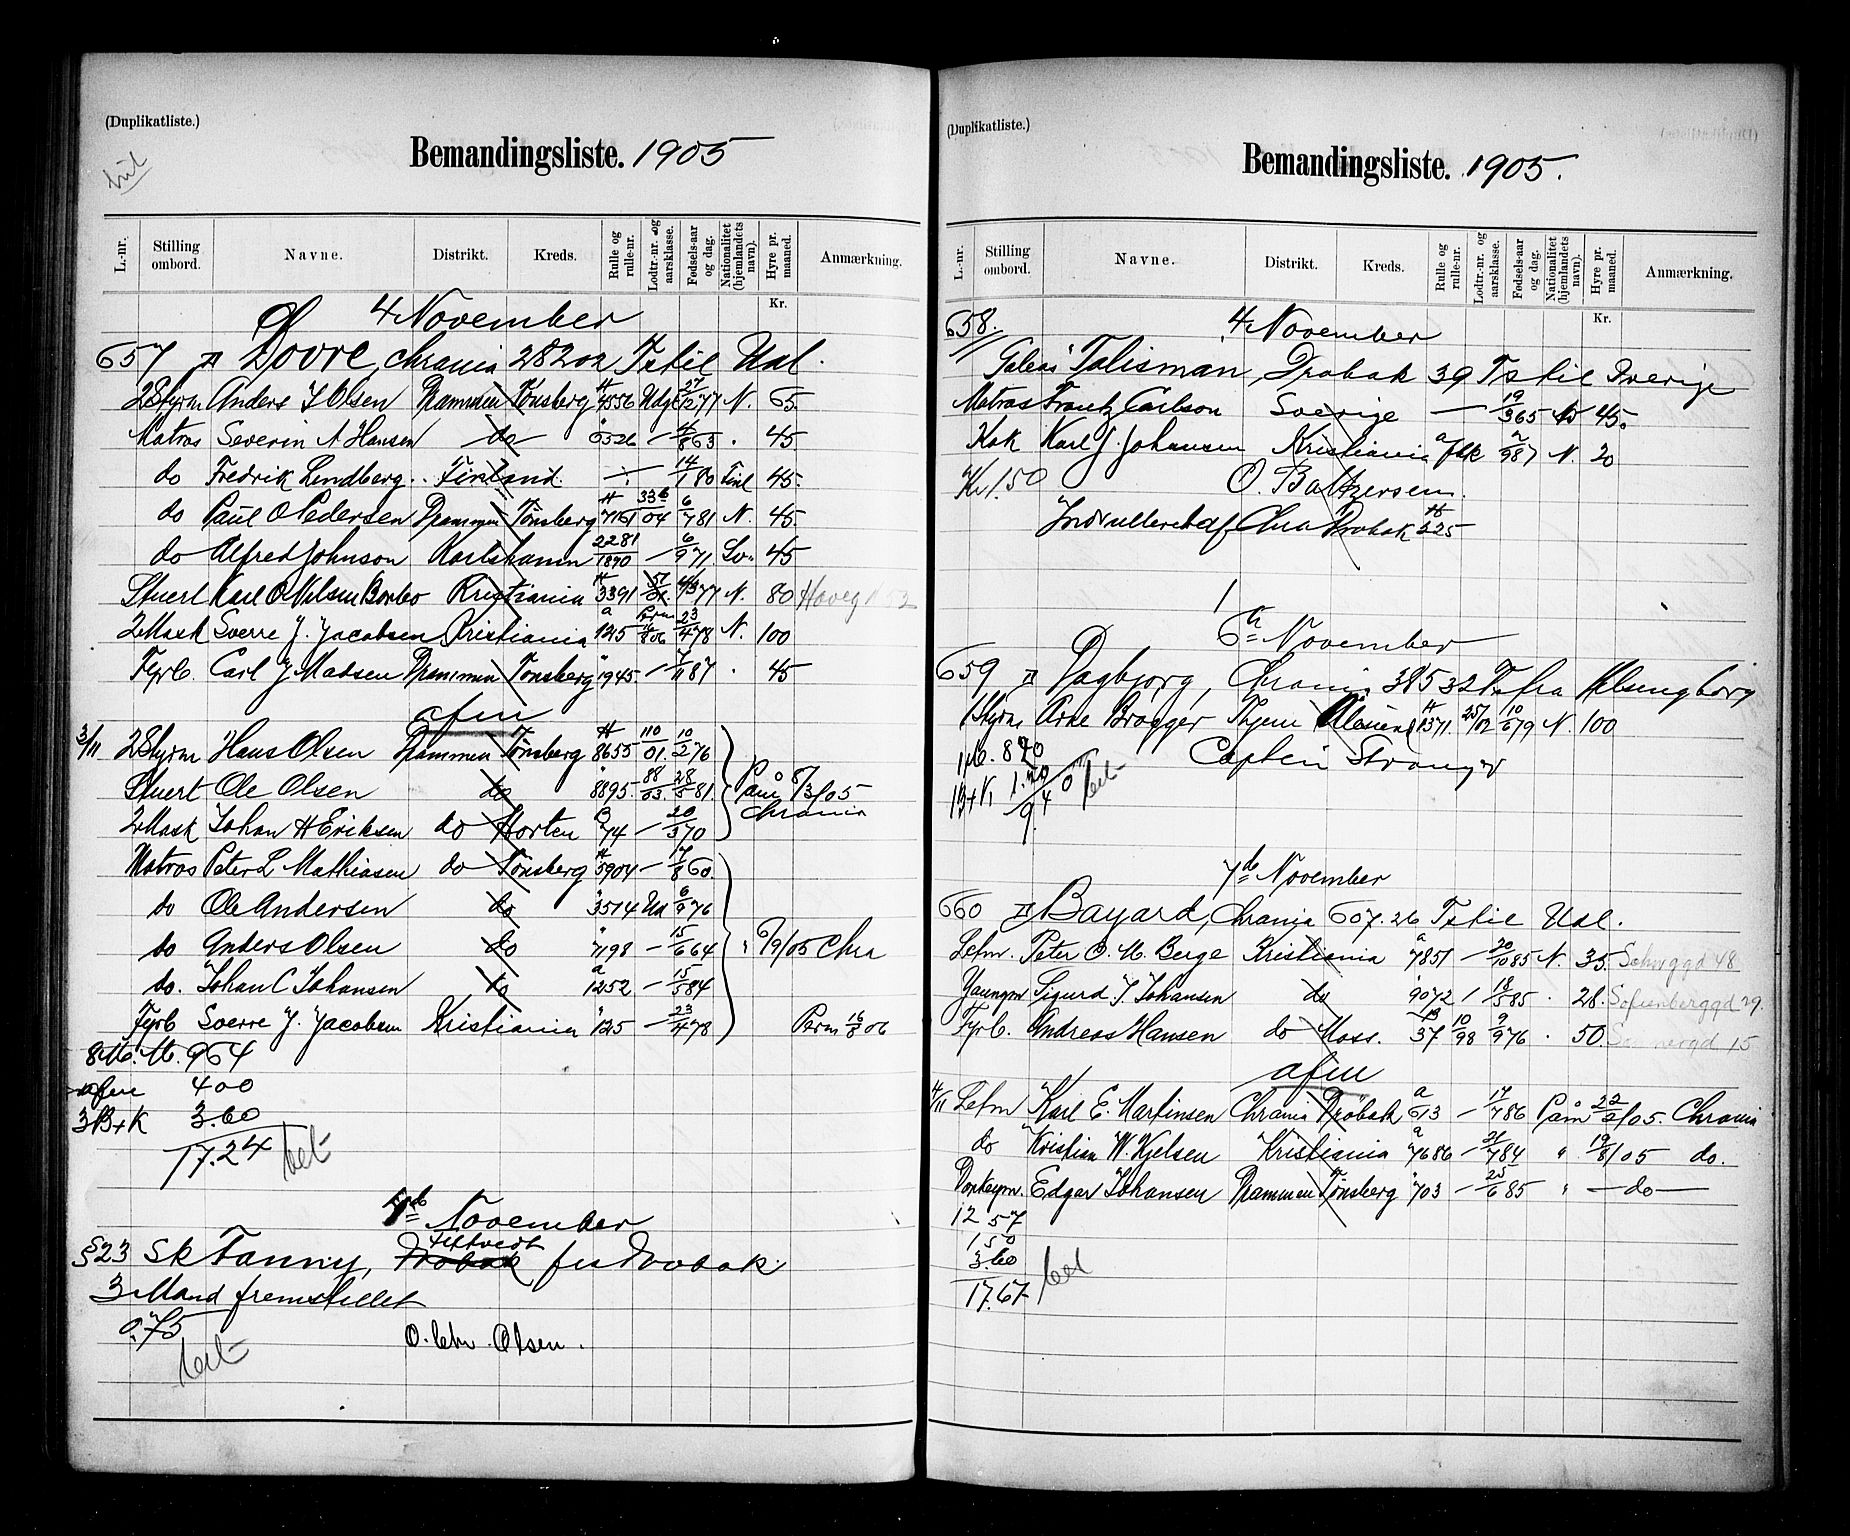 (Duplikatliste.)
Bemandingsliste. 1905
L.-nr. Stilling ombord. Navne. Distrikt. Kreds. Rulle og rulle-nr. Lodtr.-nr. og aarsklasse. Fødsels-aar og dag. Nationalitet (hjemlandets navn). Hyre pr. maaned. Anmærkning.
Kr.
4 November
657 Dovre, Chrania 282 02 T til Udl.
2 Styrm Anders J Olsen Drammen Tønsberg H 4556 Udg 27/12 77 N. 65.
Matros Severin A Hansen do " 6526 — 4/8 63 . 45
do Fredrik Lindberg Finland — 14/1 80 Finl 45.
do Paul O Pedersen Drammen Tønsberg H 7161 336/04 6/7 81 N. 45
do Alfred Johnson Karlshamn 2281/1890 — 6/9 71 Sv. 45
Stuert Karl O Nilsen Kristiania H 3391 N. 80
2 Mask Sverre J. Jacobsen Kristiania a 125 Perm 16/8 06 23/4 78 N. 100
Fyrb. Carl J Madsen Drammen Tønsberg " 1945 — 7/11 87 . 45
afm
3/11 2 Styrm Hans Olsen Drammen Tønsberg H 8655 110/01. 10/2 76
Stuert Ole Olsen do " 8895. 88/03. 28/5 81. Påm 8/3/05
2 Mask Johan H Eriksen do Horten C 74 — 20/3 70 Chrania
Matros Peter L Mathiasen do Tønsberg H 5904 — 17/8 60.
do Ole Andersen do " 3514 Ud 6/9 76
do Anders Olsen do " 7198 — 15/6 64 " 6/9/05 Chra
do. Johan C Johansen do a 1252 — 15/5 84
Fyrb Sverre J. Jacobsen Kristiania " 125 — 23/4 78 Perm 16/8 06
8 M. M. 964
afm 400
3 B+K 3.60
17.24 bet
7de November
§23 Sk Fanny, Filtvedt Drobak fra Drobak
3 Mand fremstillet
0.75
bet
O. Chr. Olsen.
(Duplikatliste.)
Bemandingsliste. 1905.
L.-nr. Stilling ombord. Navne. Distrikt. Kreds. Rulle og rulle-nr. Lodtr.-nr. og aarsklasse. Fødsels-aar og dag. Nationalitet (hjemlandets navn). Hyre pr. maaned. Anmærkning.
Kr.
658. 4 November
Galeas Talisman, Drobak 39 Ts til Sverige
Matros Frantz Carlson Sverige — 19/3 65 45.
Kok Karl J. Johansen Kristiania a 7/9 87 N. 20
Kr 1.50 O. Baltzersen.
Indrulleret af Chra Drobak H 225
6te November
659 Dagbjørg, Chrania 385 32 T fra Helsingborg
1 Styrm Arne Brøgger Thjem Ålesund H 1371. 25/02 10/6 79 N. 100
1 M. 820 Captein Stranger
1 B+K 1.20
9.40 bet
7de November
660 Bayard, Chrania 607.26 T til Udl.
Letm. Peter O. M. Berge Kristiania a 7851 — 20/10 85 N. 35.
Jaungm Sigurd J Johansen do " 9072 / 18/5 85 . 28. Sofienberggd 29.
Fyrb. Andreas Hansen do Moss. B 37 10/98 9/9 76 . 50.
afm
4/11 Letm Karl E. Martinsen Chrania Drøbak a 613 — 17/7 86 Påm 22/2/05. Chrania
do Kristian W. Kjelsen Kristiania a 7686 — 21/7 84 " 19/8/05 do.
Donkeym. Edgar Johansen Drammen Tønsberg " 703 — 25/6 85 " — do —
12 57
1 50
3.60
17.67 bet